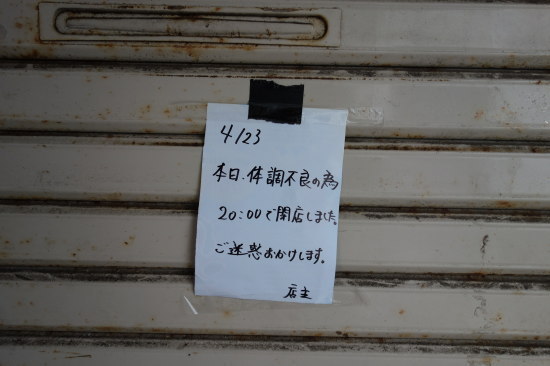 4/23
本日、体調不良の為
20:00で閉店しました。
ご迷惑おかけします。
店主